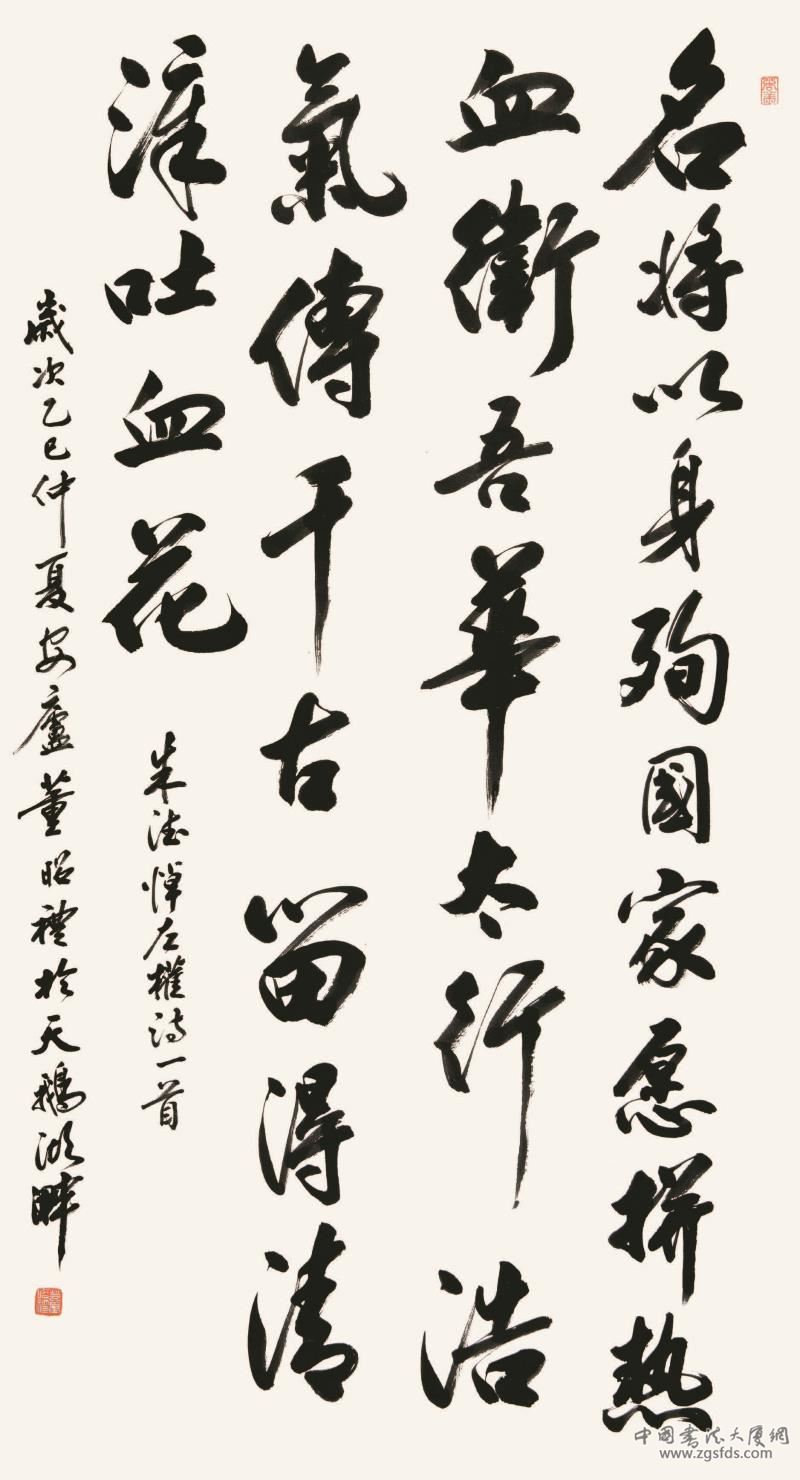 名将以身殉國家愿拼热
血衛吾華太行浩
氣傳千古留得清
漳吐血花
朱德悼左權詩一首
歲次乙巳仲夏安廬董昭禮於天鵝湖畔
中国书法大厦網
www.zgsfds.com